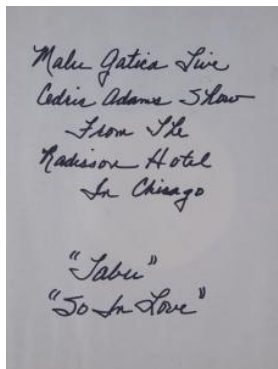 Malu Gatica Live
Cedric Adams Show
From The
Radisson Hotel
In Chicago
"Tabu"
"So In Love"